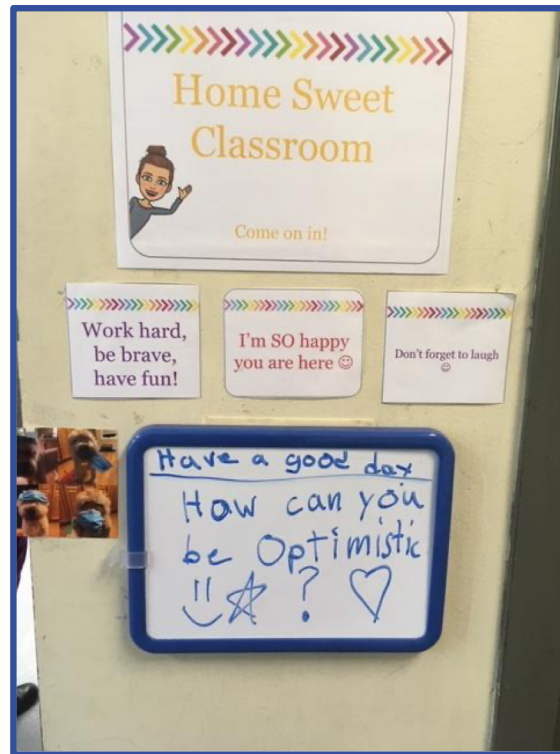 Home Sweet
Classroom
Come on in!
Work hard,
be brave,
have fun!
I'm SO happy
you are here ☺
Don't forget to laugh
☺
Have a good day
How can you
be Optimistic
?